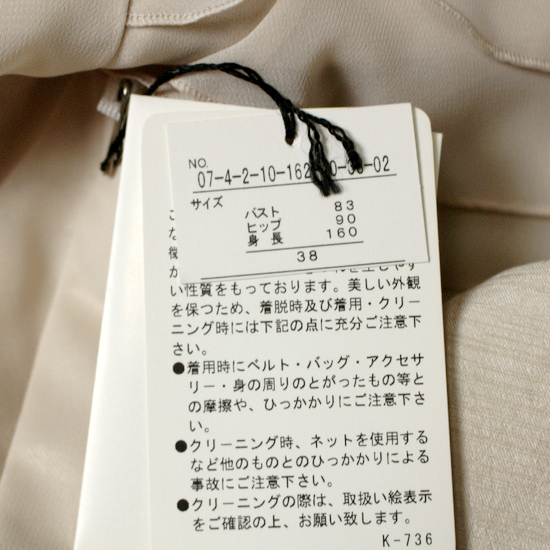 NO.
07-4-2-10-162
02
サイズ
バスト 83
ヒップ 90
身長 160
38
い性質をもっております。美しい外観
を保つため、着脱時及び着用・クリー
ニング時には下記の点に充分ご注意下
さい。
●着用時にベルト・バッグ・アクセサ
リー・身の周りのとがったもの等と
の摩擦や、ひっかかりにご注意下さ
い。
●クリーニング時、ネットを使用する
など他のものとのひっかかりによる
事故にご注意下さい。
●クリーニングの際は、取扱い絵表示
をご確認の上、お願い致します。
K-736